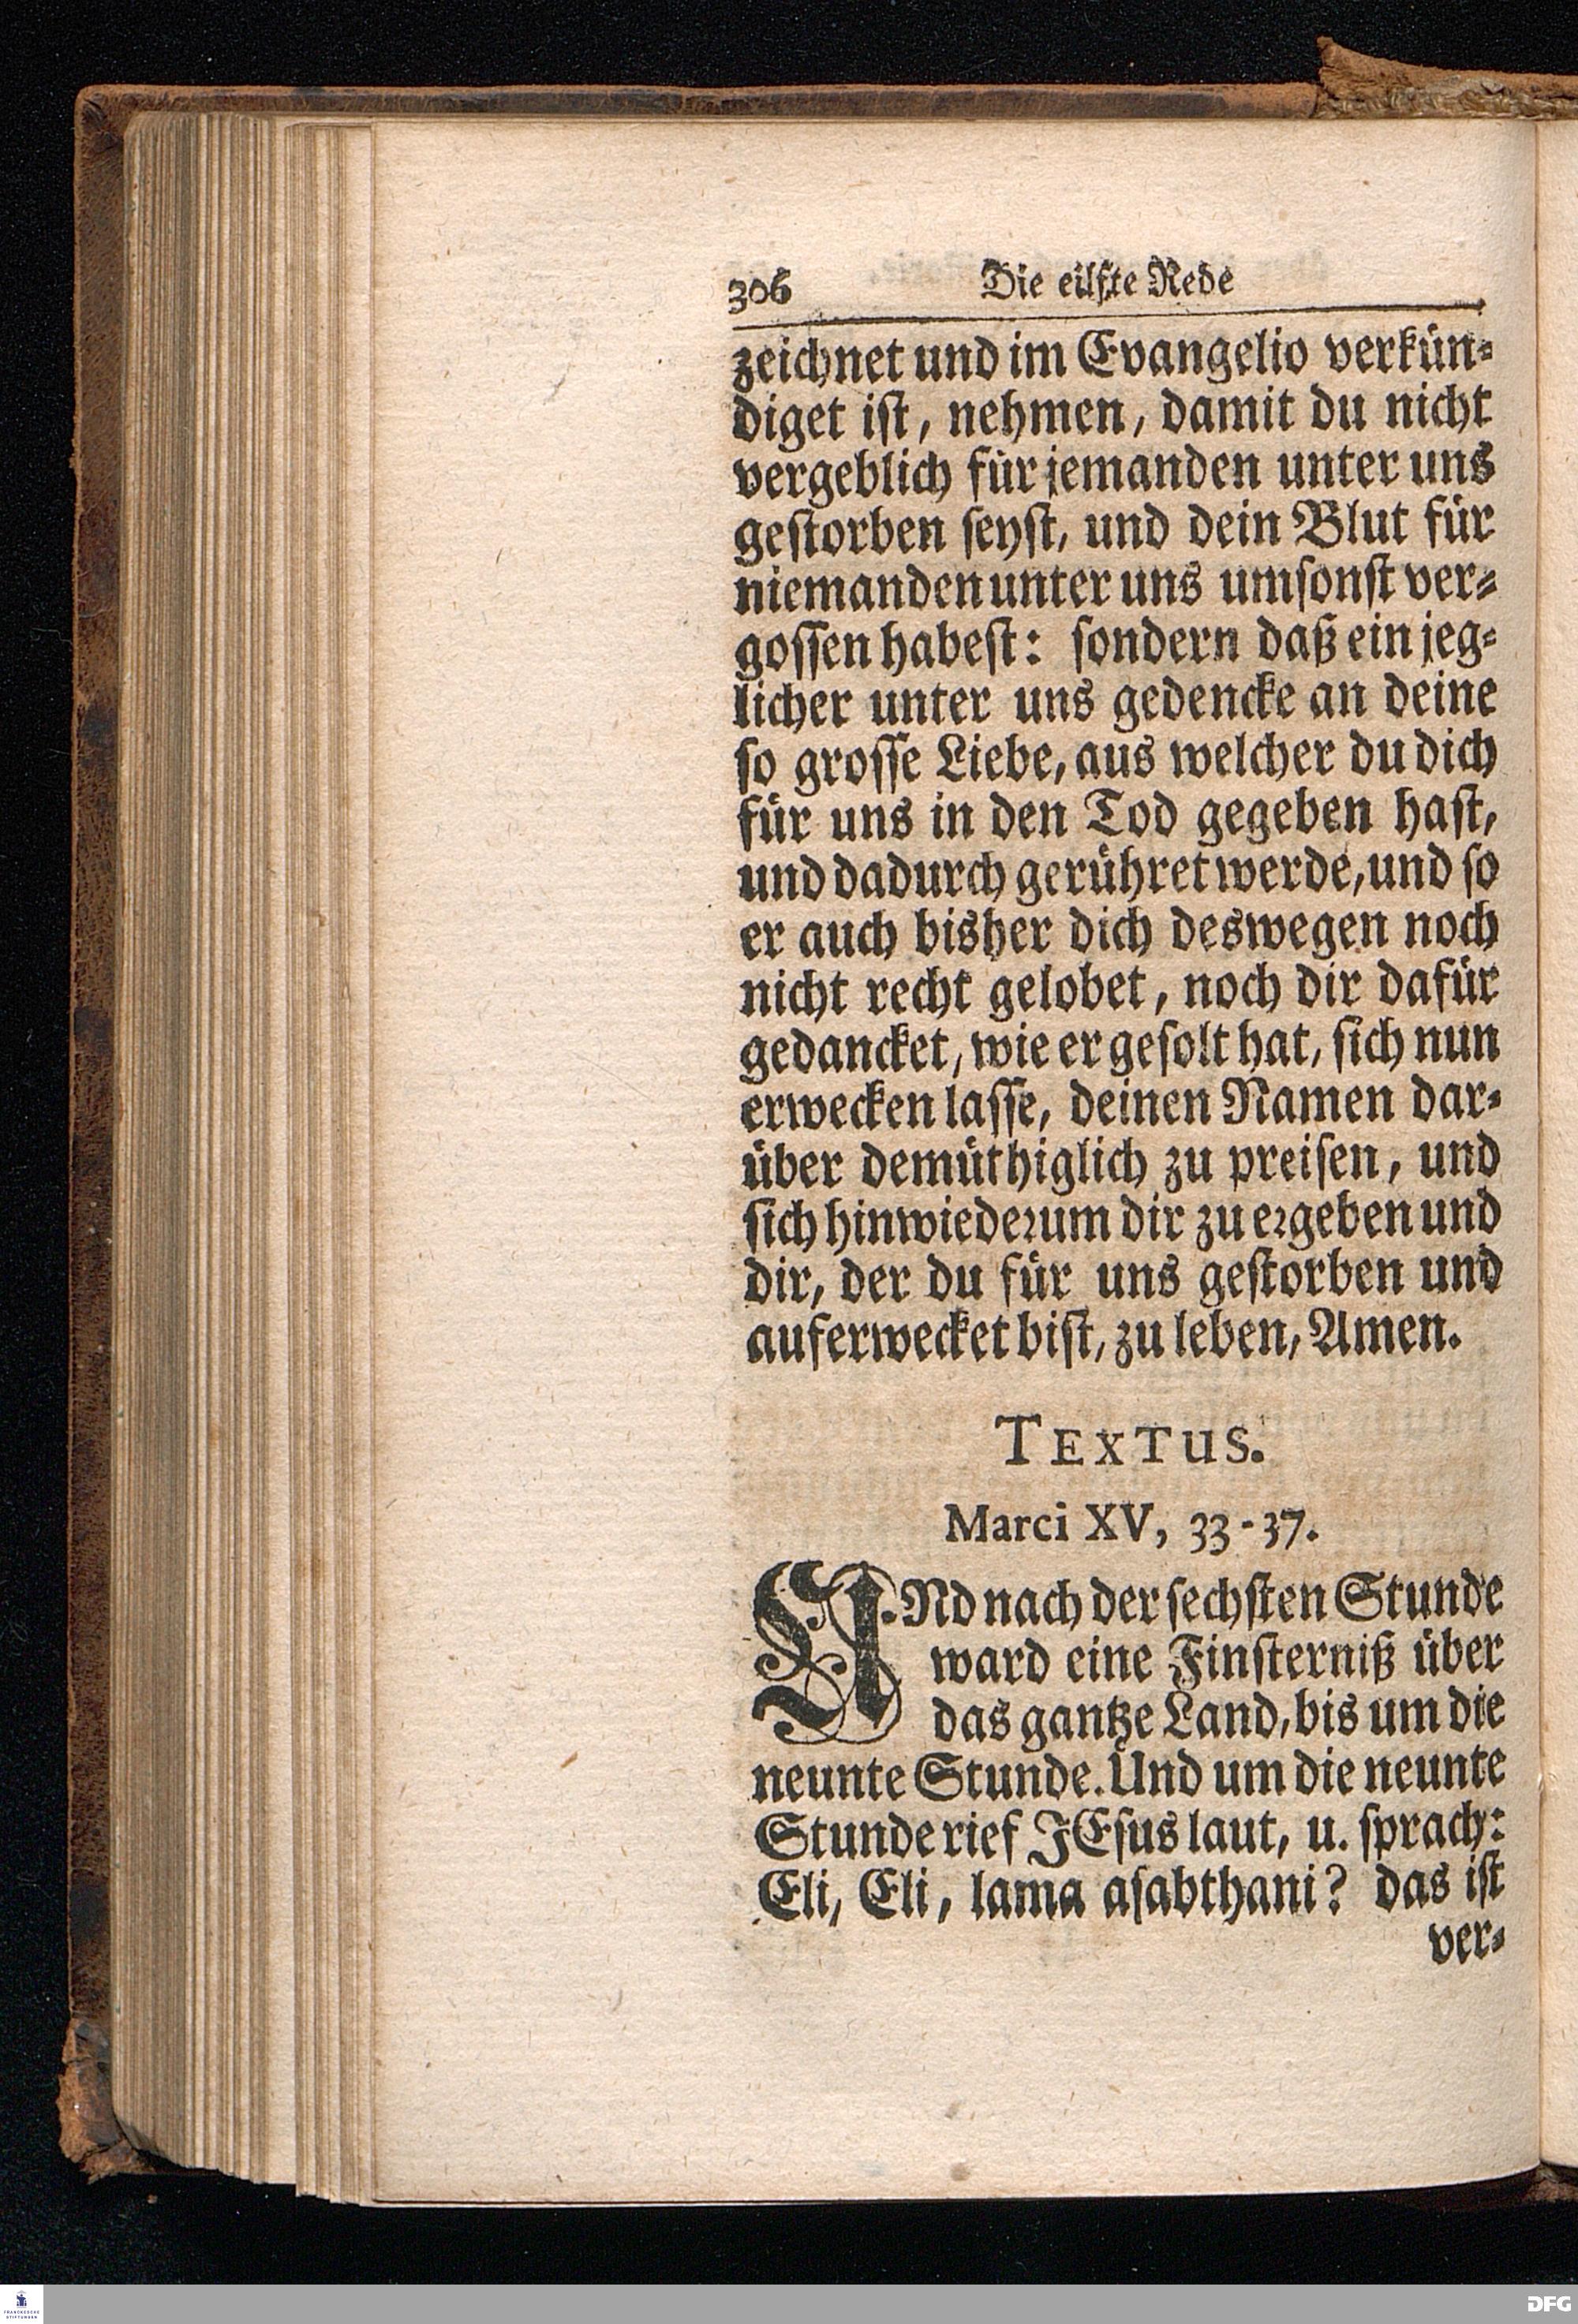 306 Die eilfte Rede
zeichnet und im Evangelio verkün-
diget ist, nehmen, damit du nicht
vergeblich für jemanden unter uns
gestorben seyst, und dein Blut für
niemanden unter uns umsonst ver-
gossen habest: sondern daß ein jeg-
licher unter uns gedencke an deine
so grosse Liebe, aus welcher du dich
für uns in den Tod gegeben hast,
und dadurch gerühret werde, und so
er auch bisher dich deswegen noch
nicht recht gelobet, noch dir dafür
gedancket, wie er gesolt hat, sich nun
erwecken lasse, deinen Namen dar-
über demüthiglich zu preisen, und
sich hinwiederum dir zu ergeben und
dir, der du für uns gestorben und
auferwecket bist, zu leben, Amen.
TEXTUS.
Marci XV, 33-37.
UNd nach der sechsten Stunde
ward eine Finsterniß über
das gantze Land, bis um die
neunte Stunde. Und um die neunte
Stunde rief JEsus laut, u. sprach:
Eli, Eli, lama asabthani? das ist
ver-
FRANCKESCHE
STIFTUNGEN
DFG